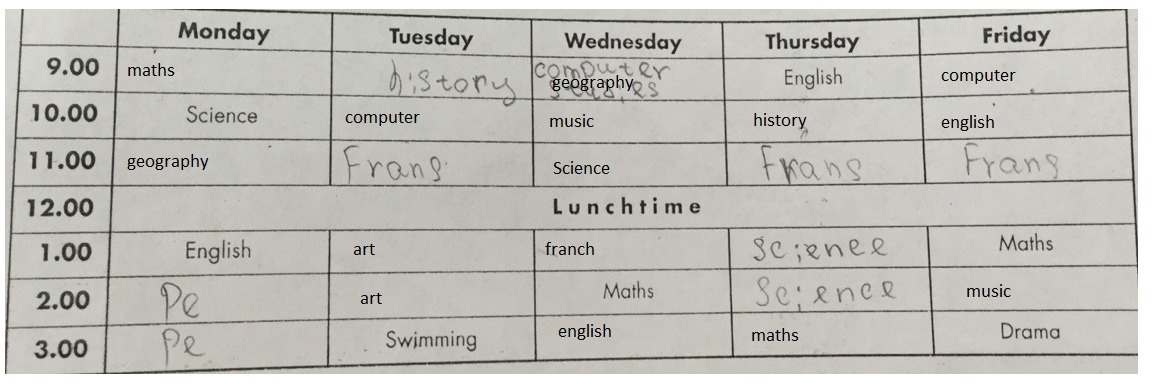 Monday Tuesday Wednesday Thursday Friday
9.00 maths history computer geography English computer
10.00 Science computer music history english
11.00 geography Frans Science Frans Frans
12.00 Lunchtime
1.00 English art franch Science Maths
2.00 Pe art Maths Science music
3.00 Pe Swimming english maths Drama